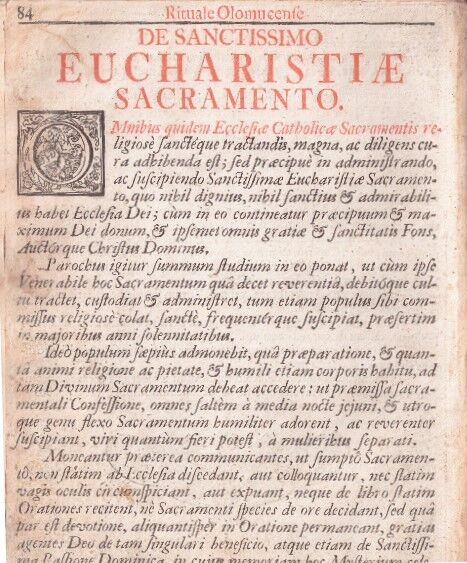 84 Rituale Olomucense
DE SANCTISSIMO
EUCHARISTIÆ
SACRAMENTO.
OMnibus quidem Ecclesiæ Catholicæ Sacramentis re-
ligiosè sanctéque tractandis, magna, ac diligens cu-
ra adhibenda est; sed præcipuè in administrando,
ac suscipiendo Sanctissimæ Eucharistiæ Sacramen-
to, quo nihil dignius, nihil sanctius & admirabili-
us habet Ecclesia Dei; cùm in eo contineatur præcipuum & ma-
ximum Dei donum, & ipsemet omnis gratiæ & sanctitatis Fons,
Auctórque Christus Dominus.
Parochus igitur summum studium in eo ponat, ut cùm ipse
Venerabile hoc Sacramentum quâ decet reverentiâ, debitóque cul-
tu tractet, custodiat & administret, tum etiam populus sibi com-
missus religiosè colat, sanctè, frequentérque suscipiat, præsertim
in majoribus anni solennitatibus.
Ideò populum sæpiùs admonebit, quâ præparatione, & quan-
tâ animi religione ac pietate, & humili etiam corporis habitu, ad
tam Divinum Sacramentum debeat accedere; ut præmissa sacra-
mentali Confessione, omnes saltèm à media nocte jejuni, & utro-
que genu flexo Sacramentum humiliter adorent, ac reverenter
suscipiant, viri quantùm fieri potest, à mulieribus separati.
Moneantur præterea communicantes, ut sumptô Sacramen-
tô, non stàtim ab Ecclesia discedant, aut colloquantur, nec statim
vagis oculis circumspiciant, aut expuant, neque de libro statim
Orationes recitent, nè Sacramenti species de ore decidant, sed quâ
par est devotione, aliquantispèr in Oratione permaneant, gratias
agentes Deo de tam singulari beneficio, atque etiam de Sanctissi-
ma Passione Dominica, in cujus memoriam hoc Mysterium cele-